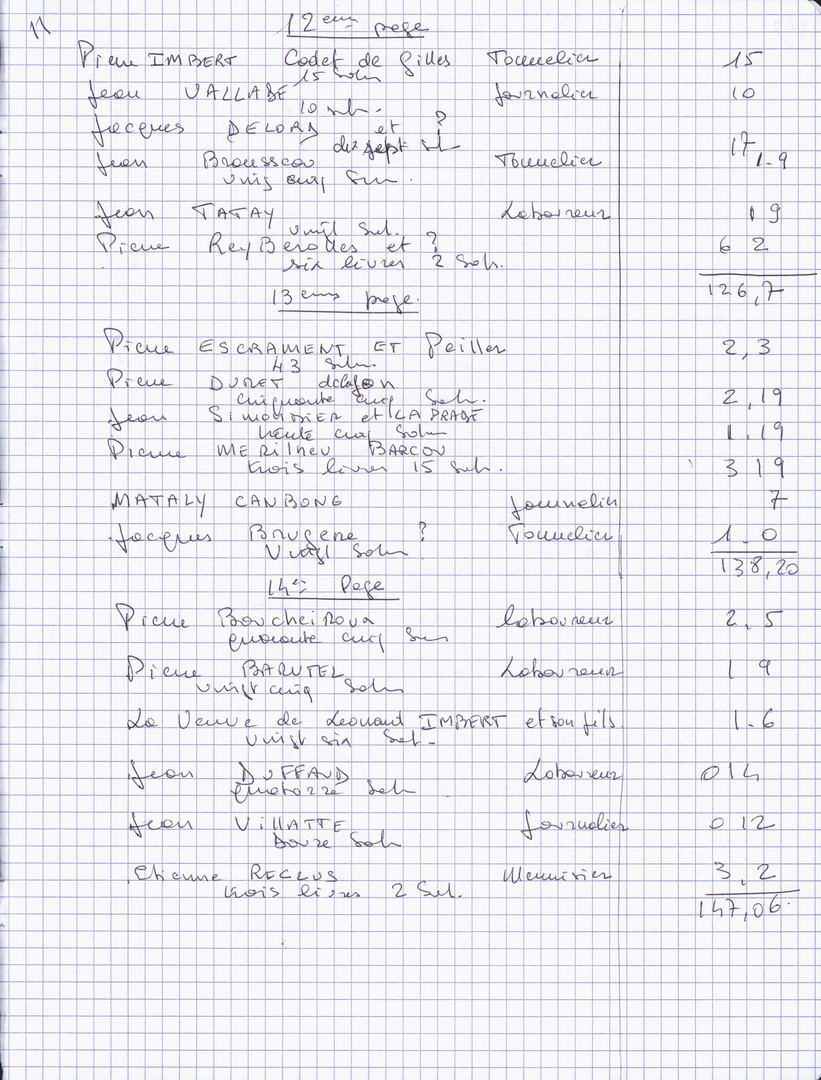 11
12eme page
Pierre IMBERT Cadet de Gilles Tonnelier 15
15 Sols
Jean VALLADE Journalier 10
10 sols.
Jacques DELORD et ? 17
dix sept sols
Jean Brousseau Tonnelier 1.9
vingt cinq Sous.
Jean TATAY Laboureur 19
vingt Sol.
Pierre Rey Berodes et ? 6 2
six livres 2 Sols.
126,7
13eme page.
Pierre ESCRAMENT ET Peiller 2,3
43 Sols.
Pierre DURET 2,19
cinquante cinq Sols.
Jean SIMONNIER et LAPRADE 1.19
trente cinq Sols
Pierre MERILHOU BARCOU 3 19
trois livres 15 Sols.
MATALY CANBONG Journalier 7
Jacques Brugere ? Tonnelier 1.0
Vingt Sols
138,20
14e Page
Pierre Laboureur 2.5
quarante cinq Sous
Pierre BARUTEL Laboureur 1 9
vingt cinq Sols
La Veuve de Leonard IMBERT et son fils. 1.6
vingt six Sol-
Jean DUFFAUD Laboureur 014
quatorze Sols
Jean VILLATTE Journalier 0 12
Douze Sols
Etienne RECLUS Menuisier 3,2
trois livres 2 Sol.
147,06.